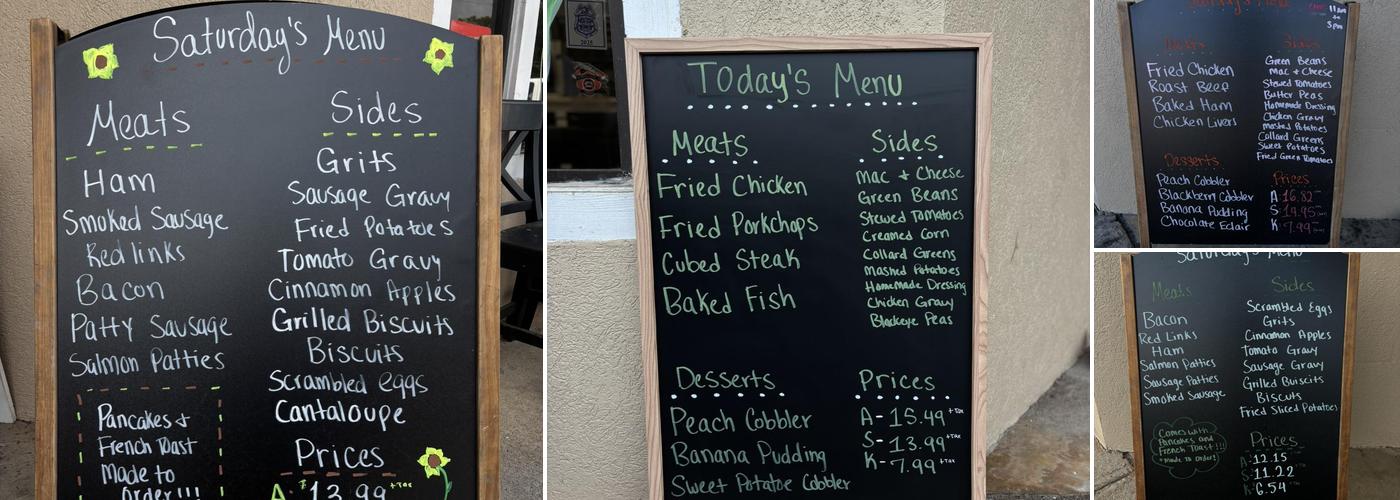 Saturday's Menu
Meats
Ham
Smoked Sausage
Red links
Bacon
Patty Sausage
Salmon Patties
Pancakes &
French Toast
Made to
Order!!!
Sides
Grits
Sausage Gravy
Fried Potatoes
Tomato Gravy
Cinnamon Apples
Grilled Biscuits
Biscuits
Scrambled eggs
Cantaloupe
Prices
A- $13.99 +TAX
2025
Today's Menu
Meats
Fried Chicken
Fried Porkchops
Cubed Steak
Baked Fish
Sides
Mac & Cheese
Green Beans
Stewed Tomatoes
Creamed Corn
Collard Greens
Mashed Potatoes
HomeMade Dressing
Chicken Gravy
Blackeye Peas
Desserts
Peach Cobbler
Banana Pudding
Sweet Potatoe Cobbler
Prices
A- 15.49 +TAX
S- 13.99 +TAX
K- 7.99 +TAX
11am
to
3pm
Meats
Fried Chicken
Roast Beef
Baked Ham
Chicken Livers
Sides
Green Beans
Mac & Cheese
Stewed Tomatoes
Butter Peas
Homemade Dressing
Chicken Gravy
Mashed Potatoes
Collard Greens
Sweet Potatoes
Fried Green Tomatoes
Desserts
Peach Cobbler
Blackberry Cobbler
Banana Pudding
Chocolate Eclair
Prices
A 16.82
S 14.95
K 7.99
Saturday's Menu
Meats
Bacon
Red Links
Ham
Salmon Patties
Sausage Patties
Smoked Sausage
Comes with
Pancakes and
French Toast!!!
*made to order!
Sides
Scrambled Eggs
Grits
Cinnamon Apples
Tomato Gravy
Sausage Gravy
Grilled Buiscits
Biscuts
Fried Sliced Potatoes
Prices
A 12.15
S 11.22
K 6.54